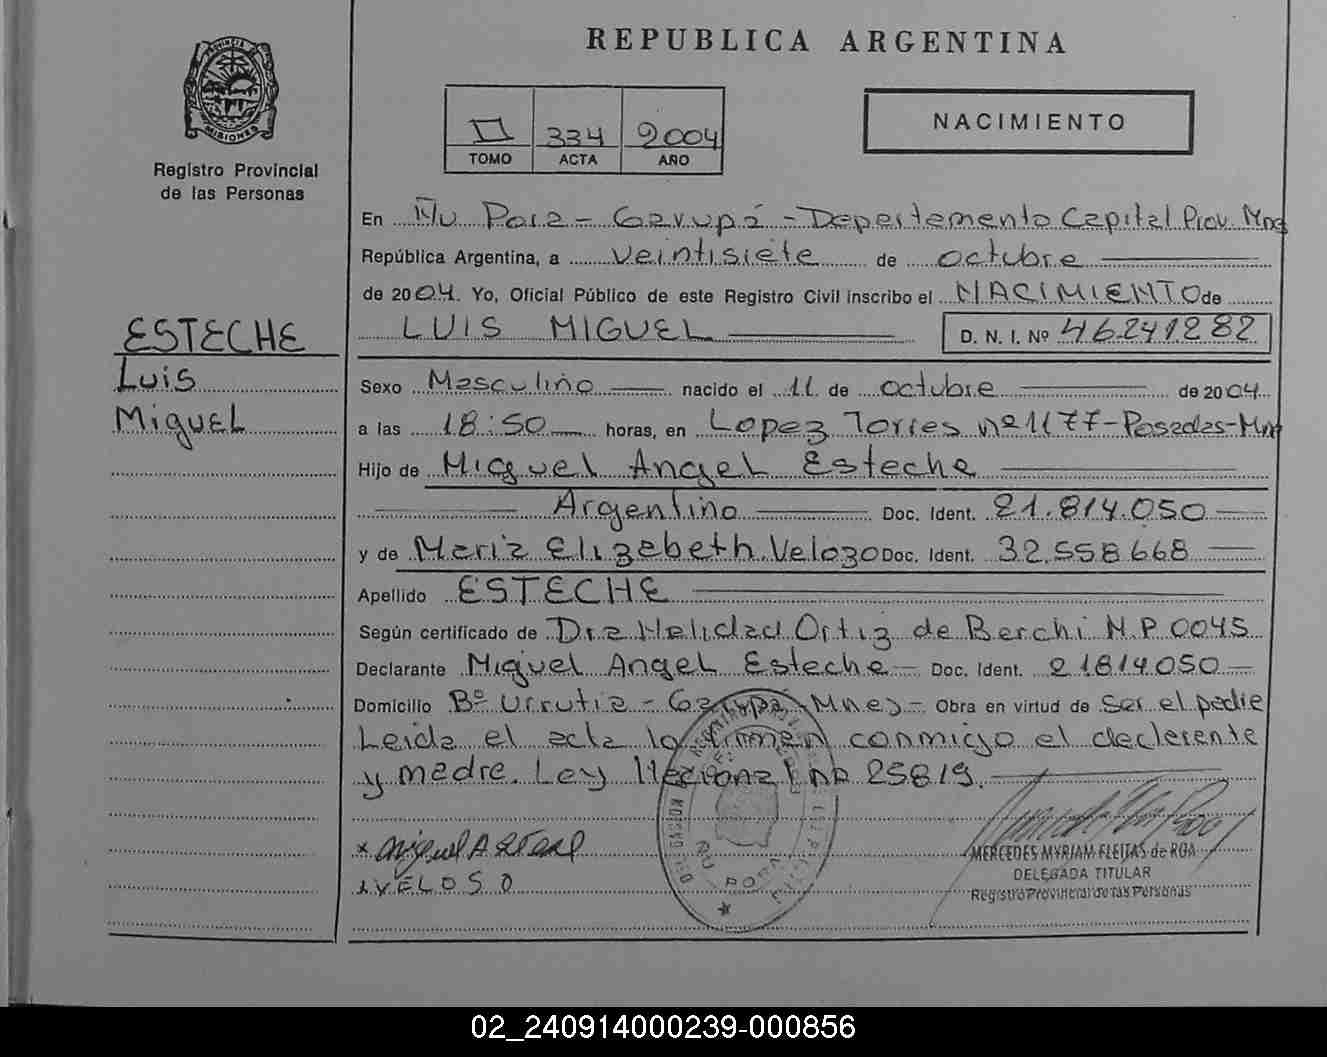 REPUBLICA ARGENTINA
PROVINCIA DE MISIONES
Registro Provincial
de las Personas
II 334 2004
TOMO ACTA AÑO
NACIMIENTO
ESTECHE
Luis
Miguel
En Ñu Pora - Garupá - Departamento Capital Prov. Mnes
República Argentina, a veintisiete de octubre
de 2004. Yo, Oficial Público de este Registro Civil inscribo el NACIMIENTO de
LUIS MIGUEL D. N. I. Nº 46.241.282
Sexo Masculino nacido el 11 de octubre de 2004
a las 18:50 horas, en Lopez Torres nº 1177 - Posadas - Mnes
Hijo de Miguel Angel Esteche
Argentino Doc. Ident. 21.814.050
y de Maria Elizabeth Velozo Doc. Ident. 32.558.668
Apellido ESTECHE
Según certificado de Dra Nelidad Ortiz de Berchi M.P 0045
Declarante Miguel Angel Esteche Doc. Ident. 21814.050
Domicilio Bº Urrutia - Garupá - Mnes - Obra en virtud de ser el padre
Leida el acta la firman conmigo el declarante
y madre. Ley Nacional nº 25819.
x Miguel A
x VELOSO
MERCEDES MYRIAM FLEITAS de ROA
DELEGADA TITULAR
Registro Provincial de las Personas
02_240914000239-000856